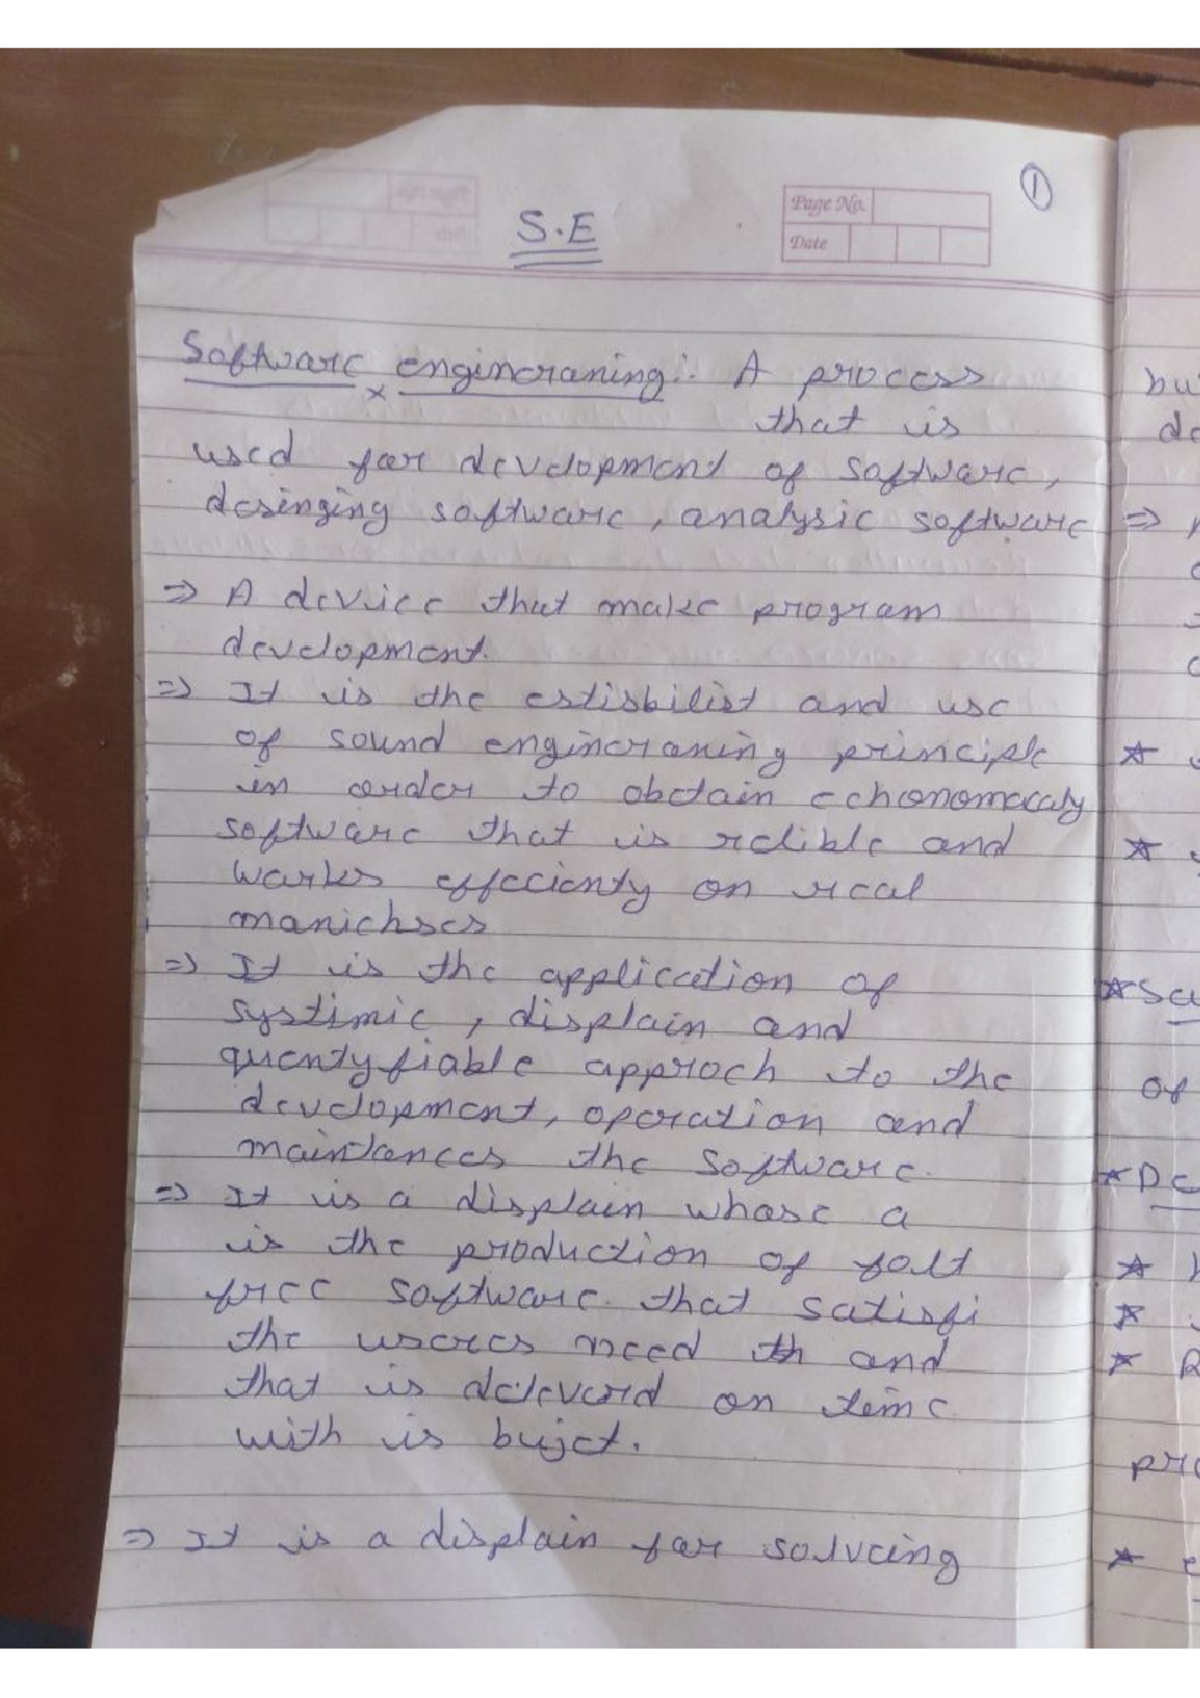 ①
Page No.
Date
S.E
Software engineraning:- A process
that is
used for development of software,
desinging software, analysic software
=> A device that make program
development.
=> It is the estisbilist and use
of sound engineraning principle
in order to obctain echonomacaly
software that is relible and
workes effecienty on real
manichses
=> It is the application of
systimic, displain and
quentyfiable approch to the
development, operation and
maintancces the software.
=> It is a displain whose a
is the production of folt
free software. that satisfi
the useres need th and
that is delevered on teime
with is bujet.
=> It is a displain for solveing
bu
de
=>
*
*
*
of
* De
*
*
* R
pro
*